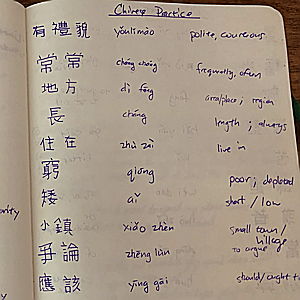 Chinese Practice
有禮貌 yǒulǐmào polite, courteous
常常 cháng cháng frequently, often
地方 dì fāng area/place; region
長 cháng length; always
住在 zhù zài live in
窮 qióng poor; depleted
矮 ǎi short / low
小鎮 xiǎo zhèn small town / village
爭論 zhēng lùn to argue
應該 yīng gāi should/ought t